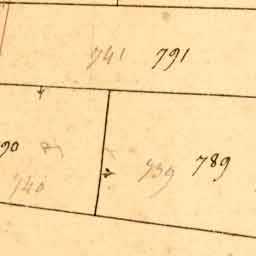 741 791
90
740
739 789